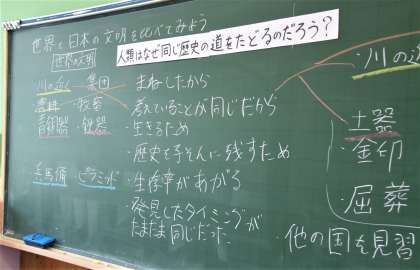 世界と日本の文明を比べてみよう
世界の文明
人類はなぜ同じ歴史の道をたどるのだろう?
川の近く 集団
農耕・牧畜
青銅器・鉄器
兵馬俑 ピラミッド
まねしたから
・考えていることが同じだから
・生きるため
・歴史を子そんに残すため
・生存率があがる
・発見したタイミングが
たまたま同じだった
川の
土器
金印
屈葬
他の国を見習